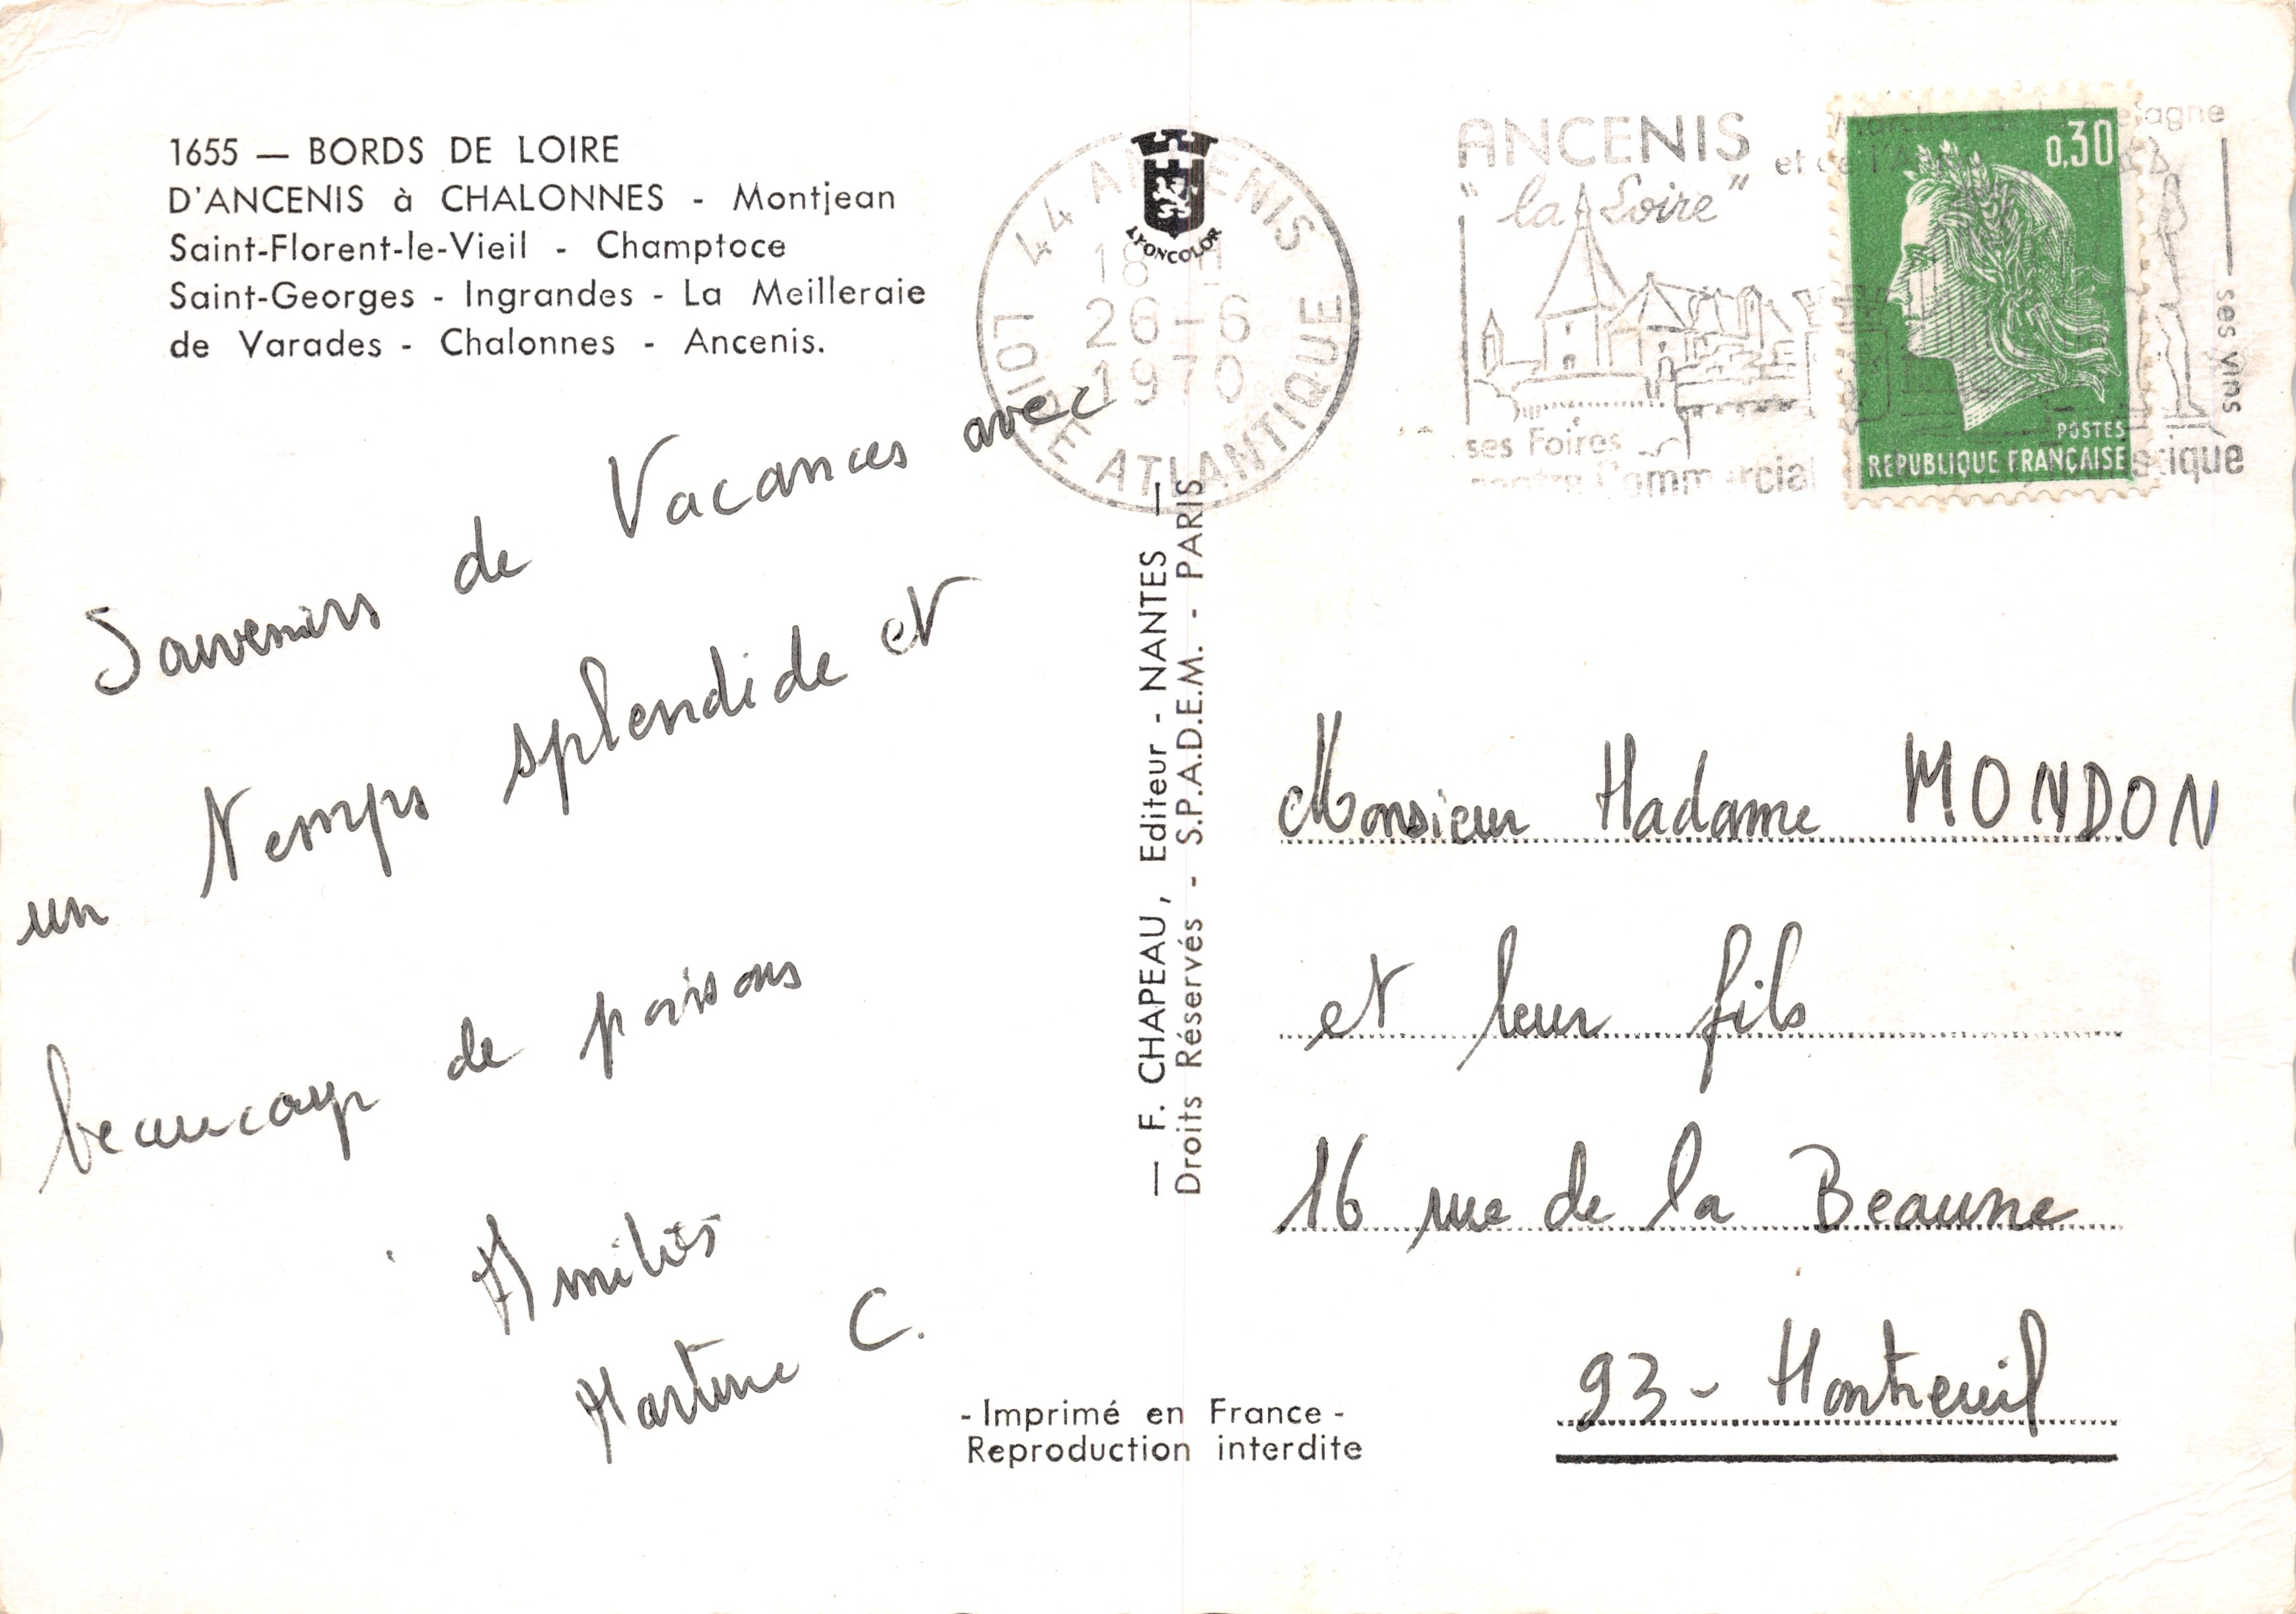 1655 — BORDS DE LOIRE
D'ANCENIS à CHALONNES - Montjean
Saint-Florent-le-Vieil - Champtoce
Saint-Georges - Ingrandes - La Meilleraie
de Varades - Chalonnes - Ancenis.
Souvenirs de Vacances avec
un Temps splendide et
beaucoup de poissons
Amitiés
Martine C.
LYONCOLOR
44 ANCENIS
18
26-6
1970
LOIRE ATLANTIQUE
ANCENIS
"la Loire"
et de l'
ses vins
ses Foires
Commercial
0,30
POSTES
REPUBLIQUE FRANÇAISE
— F. CHAPEAU, Editeur - NANTES —
Droits Réservés - S.P.A.D.E.M. - PARIS
Monsieur Madame MONDON
et leur fils
16 rue de la Beaune
93 - Montreuil
- Imprimé en France -
Reproduction interdite